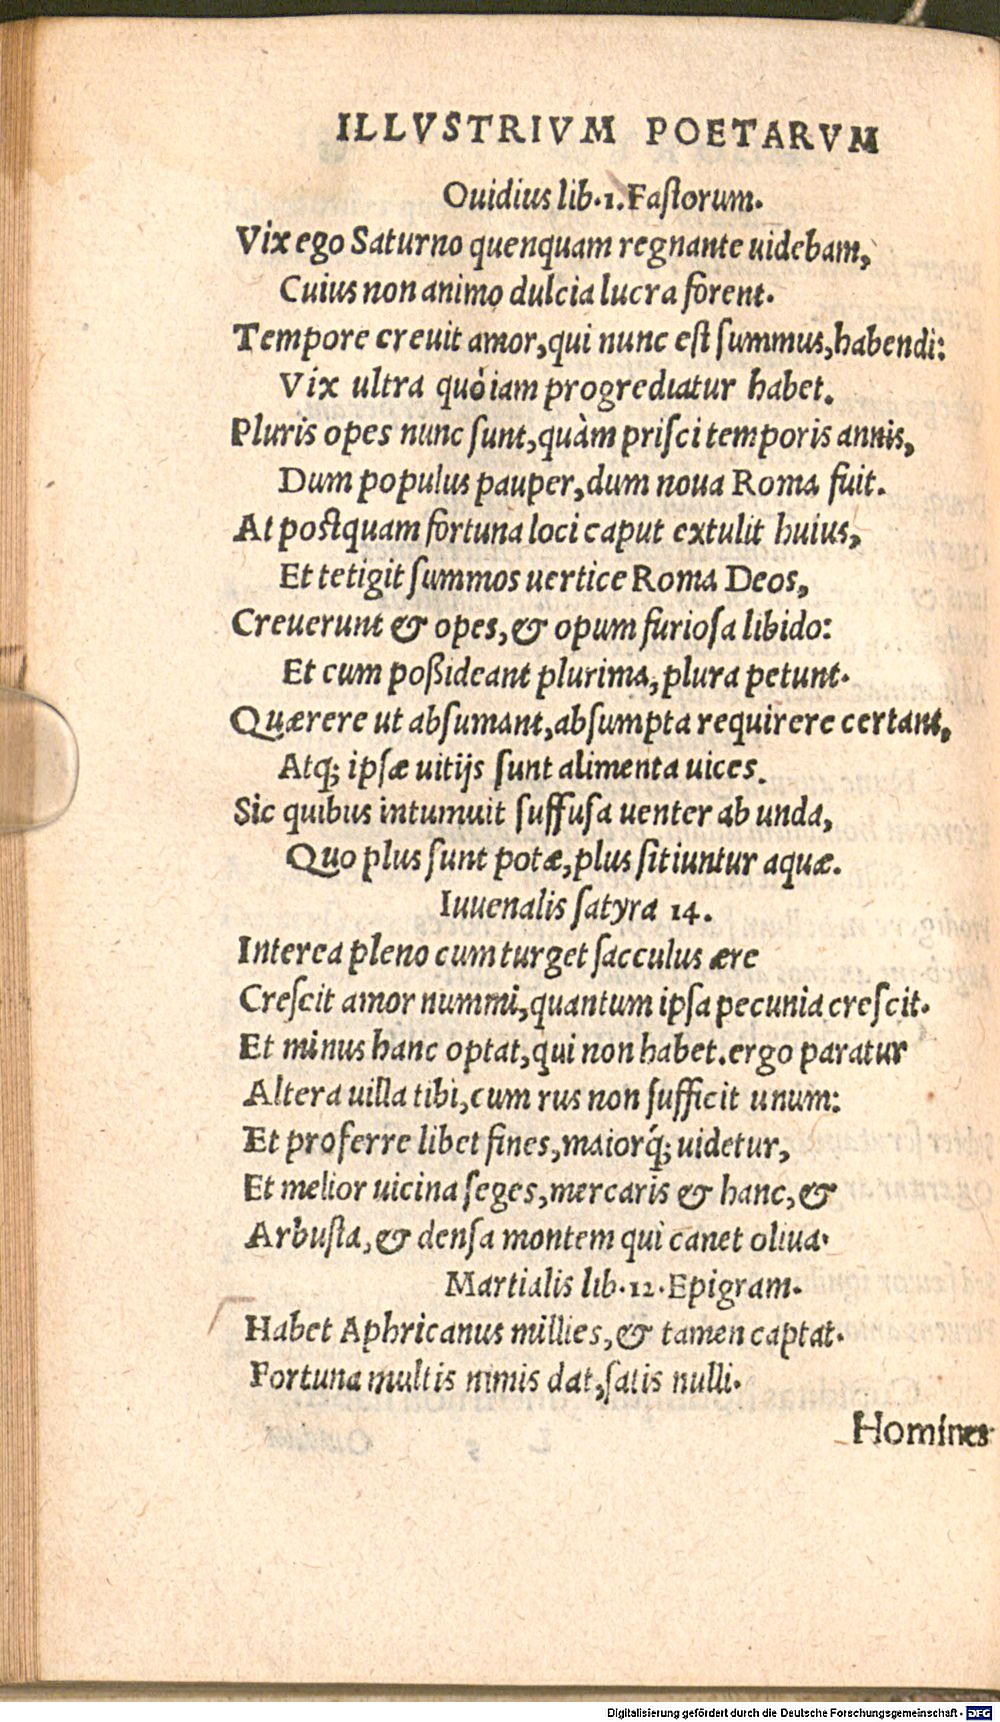 ILLVSTRIVM POETARVM
Ouidius lib.1.Faſtorum.
Vix ego Saturno quenquam regnante uidebam,
Cuius non animo dulcia lucra forent.
Tempore creuit amor,qui nunc eſt ſummus,habendi:
Vix ultra quò iam progrediatur habet.
Pluris opes nunc ſunt,quàm priſci temporis annis,
Dum populus pauper,dum noua Roma fuit.
At poſtquam fortuna loci caput extulit huius,
Et tetigit ſummos uertice Roma Deos,
Creuerunt & opes,& opum furioſa libido:
Et cum poßideant plurima,plura petunt.
Quærere ut abſumant,abſumpta requirere certant,
Atq; ipſæ uitijs ſunt alimenta uices.
Sic quibus intumuit ſuffuſa uenter ab unda,
Quo plus ſunt potæ,plus ſitiuntur aquæ.
Iuuenalis ſatyra 14.
Interea pleno cum turget ſacculus ære
Creſcit amor nummi,quantum ipſa pecunia creſcit.
Et minus hanc optat,qui non habet.ergo paratur
Altera uilla tibi,cum rus non ſufficit unum:
Et proferre libet fines,maiorq́; uidetur,
Et melior uicina ſeges,mercaris & hanc,&
Arbuſta,& denſa montem qui canet oliua.
Martialis lib.12.Epigram.
Habet Aphricanus millies,& tamen captat.
Fortuna multis nimis dat,ſatis nulli.
Homines
Digitalisierung gefördert durch die Deutsche Forschungsgemeinschaft - DFG